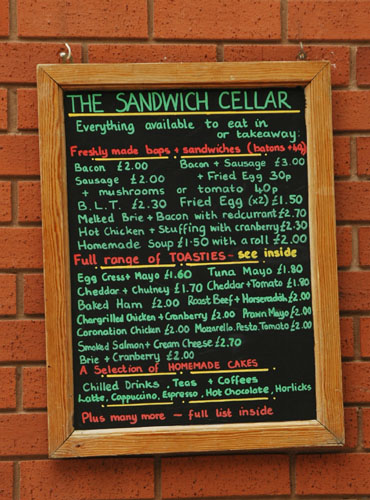 THE SANDWICH CELLAR
Everything available to eat in
or takeaway:
Freshly made baps + sandwiches (batons +40p)
Bacon £2.00 Bacon + Sausage £3.00
Sausage £2.00 + Fried Egg 30p
+ mushrooms or tomato 40p
B.L.T. £2.30 Fried Egg (x2) £1.50
Melted Brie + Bacon with redcurrant £2.70
Hot Chicken + Stuffing with cranberry £2.30
Homemade Soup £1.50 with a roll £2.00
Full range of TOASTIES - see inside
Egg Cress + Mayo £1.60 Tuna Mayo £1.80
Cheddar + Chutney £1.70 Cheddar + Tomato £1.80
Baked Ham £2.00 Roast Beef + Horseradish £2.00
Chargrilled Chicken + Cranberry £2.00 Prawn Mayo £2.00
Coronation Chicken £2.00 Mozzarella, Pesto, Tomato £2.00
Smoked Salmon + Cream Cheese £2.70
Brie + Cranberry £2.00
A Selection of HOMEMADE CAKES
Chilled Drinks, Teas + Coffees
Latte, Cappucino, Espresso, Hot Chocolate, Horlicks
Plus many more - full list inside